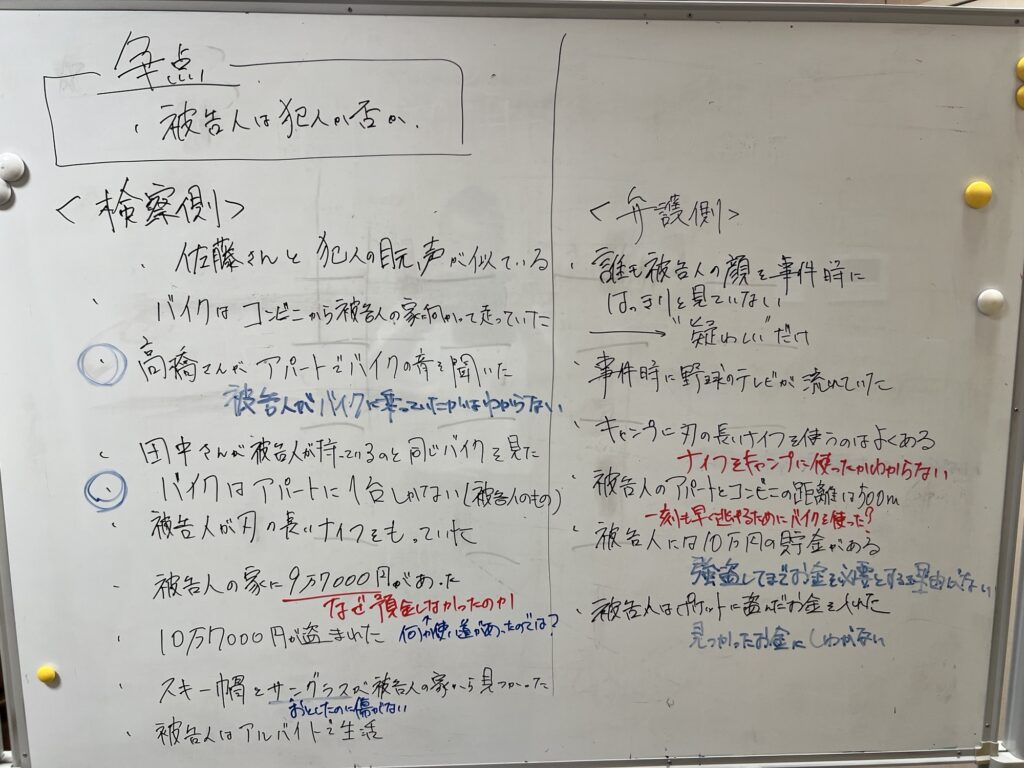 争点
・被告人は犯人か否か.
<検察側>
・佐藤さんと犯人の目元,声が似ている
・バイクはコンビニから被告人の家に向かって走っていた
高橋さんがアパートでバイクの音を聞いた
被告人がバイクに乗っていたかはわからない
・田中さんが被告人が持っているのと同じバイクを見た
バイクはアパートに1台しかない(被告人のもの)
・被告人が刃の長いナイフをもっていた
・被告人の家に9万7000円があった
なぜ預金しなかったのか
・10万7000円が盗まれた
何か使い道があったのでは?
・スキー帽とサングラスが被告人の家から見つかった
おとしたのに傷がない
・被告人はアルバイトで生活
<弁護側>
・誰も被告人の顔を事件時に
はっきりと見ていない
→"疑わしい"だけ
・事件時に野球のテレビが流れていた
・キャンプに刃の長いナイフを使うのはよくある
ナイフをキャンプに使ったかわからない
・被告人のアパートとコンビニの距離は500m
一刻も早く逃げるためにバイクを使った?
・被告人には10万円の貯金がある
強盗してまでお金を必要とする理由がない
・被告人はポケットに盗んだお金を入れた
見つかったお金にしわがない